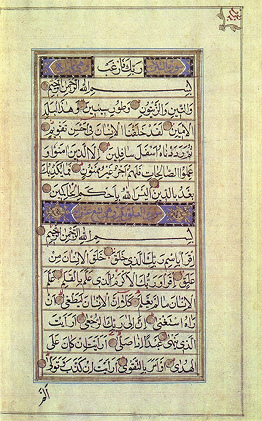 ربك فارغب
بسم الله الرحمن الرحيم
والتين والزيتون وطور سينين وهذا البلد
الامين لقد خلقنا الانسان في احسن تقويم
ثم رددناه اسفل سافلين الا الذين امنوا و
عملوا الصالحات فلهم اجر غير ممنون فما يكذبك
بعد بالدين اليس الله باحكم الحاكمين
بسم الله الرحمن الرحيم
اقرأ باسم ربك الذي خلق خلق الانسان من
علق اقرأ وربك الاكرم الذي علم بالقلم علم
الانسان ما لم يعلم كلا ان الانسان ليطغى ان
راه استغنى ان الى ربك الرجعى ارايت
الذي ينهى عبدا اذا صلى ارايت ان كان على
الهدى او امر بالتقوى ارايت ان كذب وتولى
الم